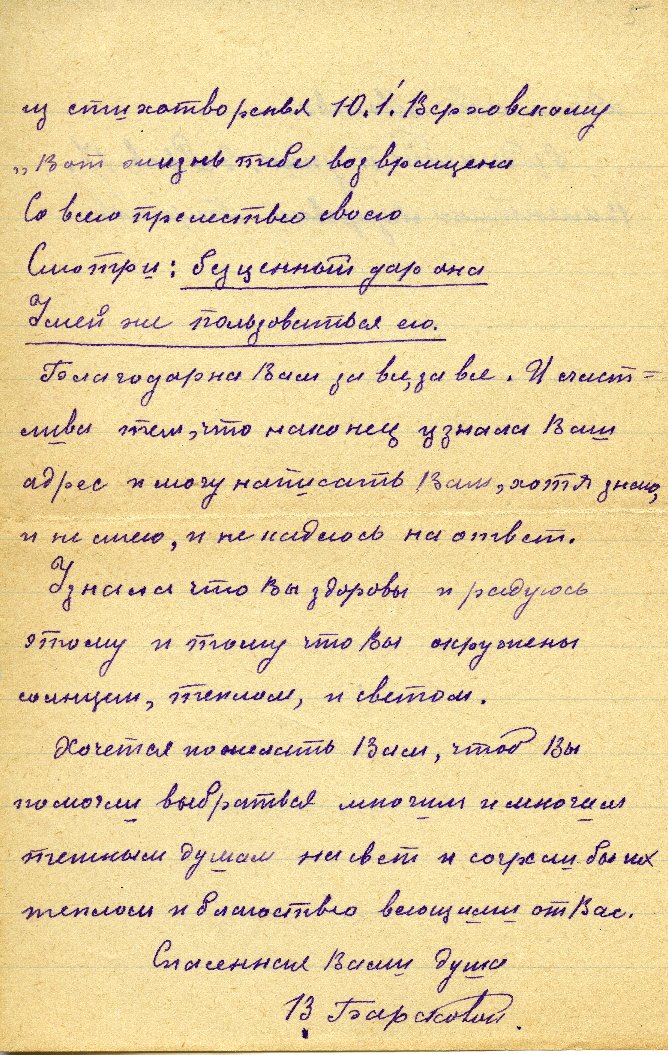 из стихотворенья Ю.I. Верховскому
„Вот жизнь тебе возвращена
Со всею прелестью своею
Смотри: бесценный дар она
Умей же пользоваться ею.
Благодарна Вам за все, за все. И счаст=
лива тем, что наконец узнала Ваш
адрес и могу написать Вам, хотя знаю,
и не смею, и не надеюсь на ответ.
Узнала что Вы здоровы и радуюсь
этому и тому что Вы окружены
солнцем, теплом, и светом.
Хочется пожелать Вам, чтоб Вы
помогли выбраться многим и многим
темным душам на свет и согрели бы их
теплом и благостью веющими от Вас.
Спасенная Вами душа
В Барсковой.